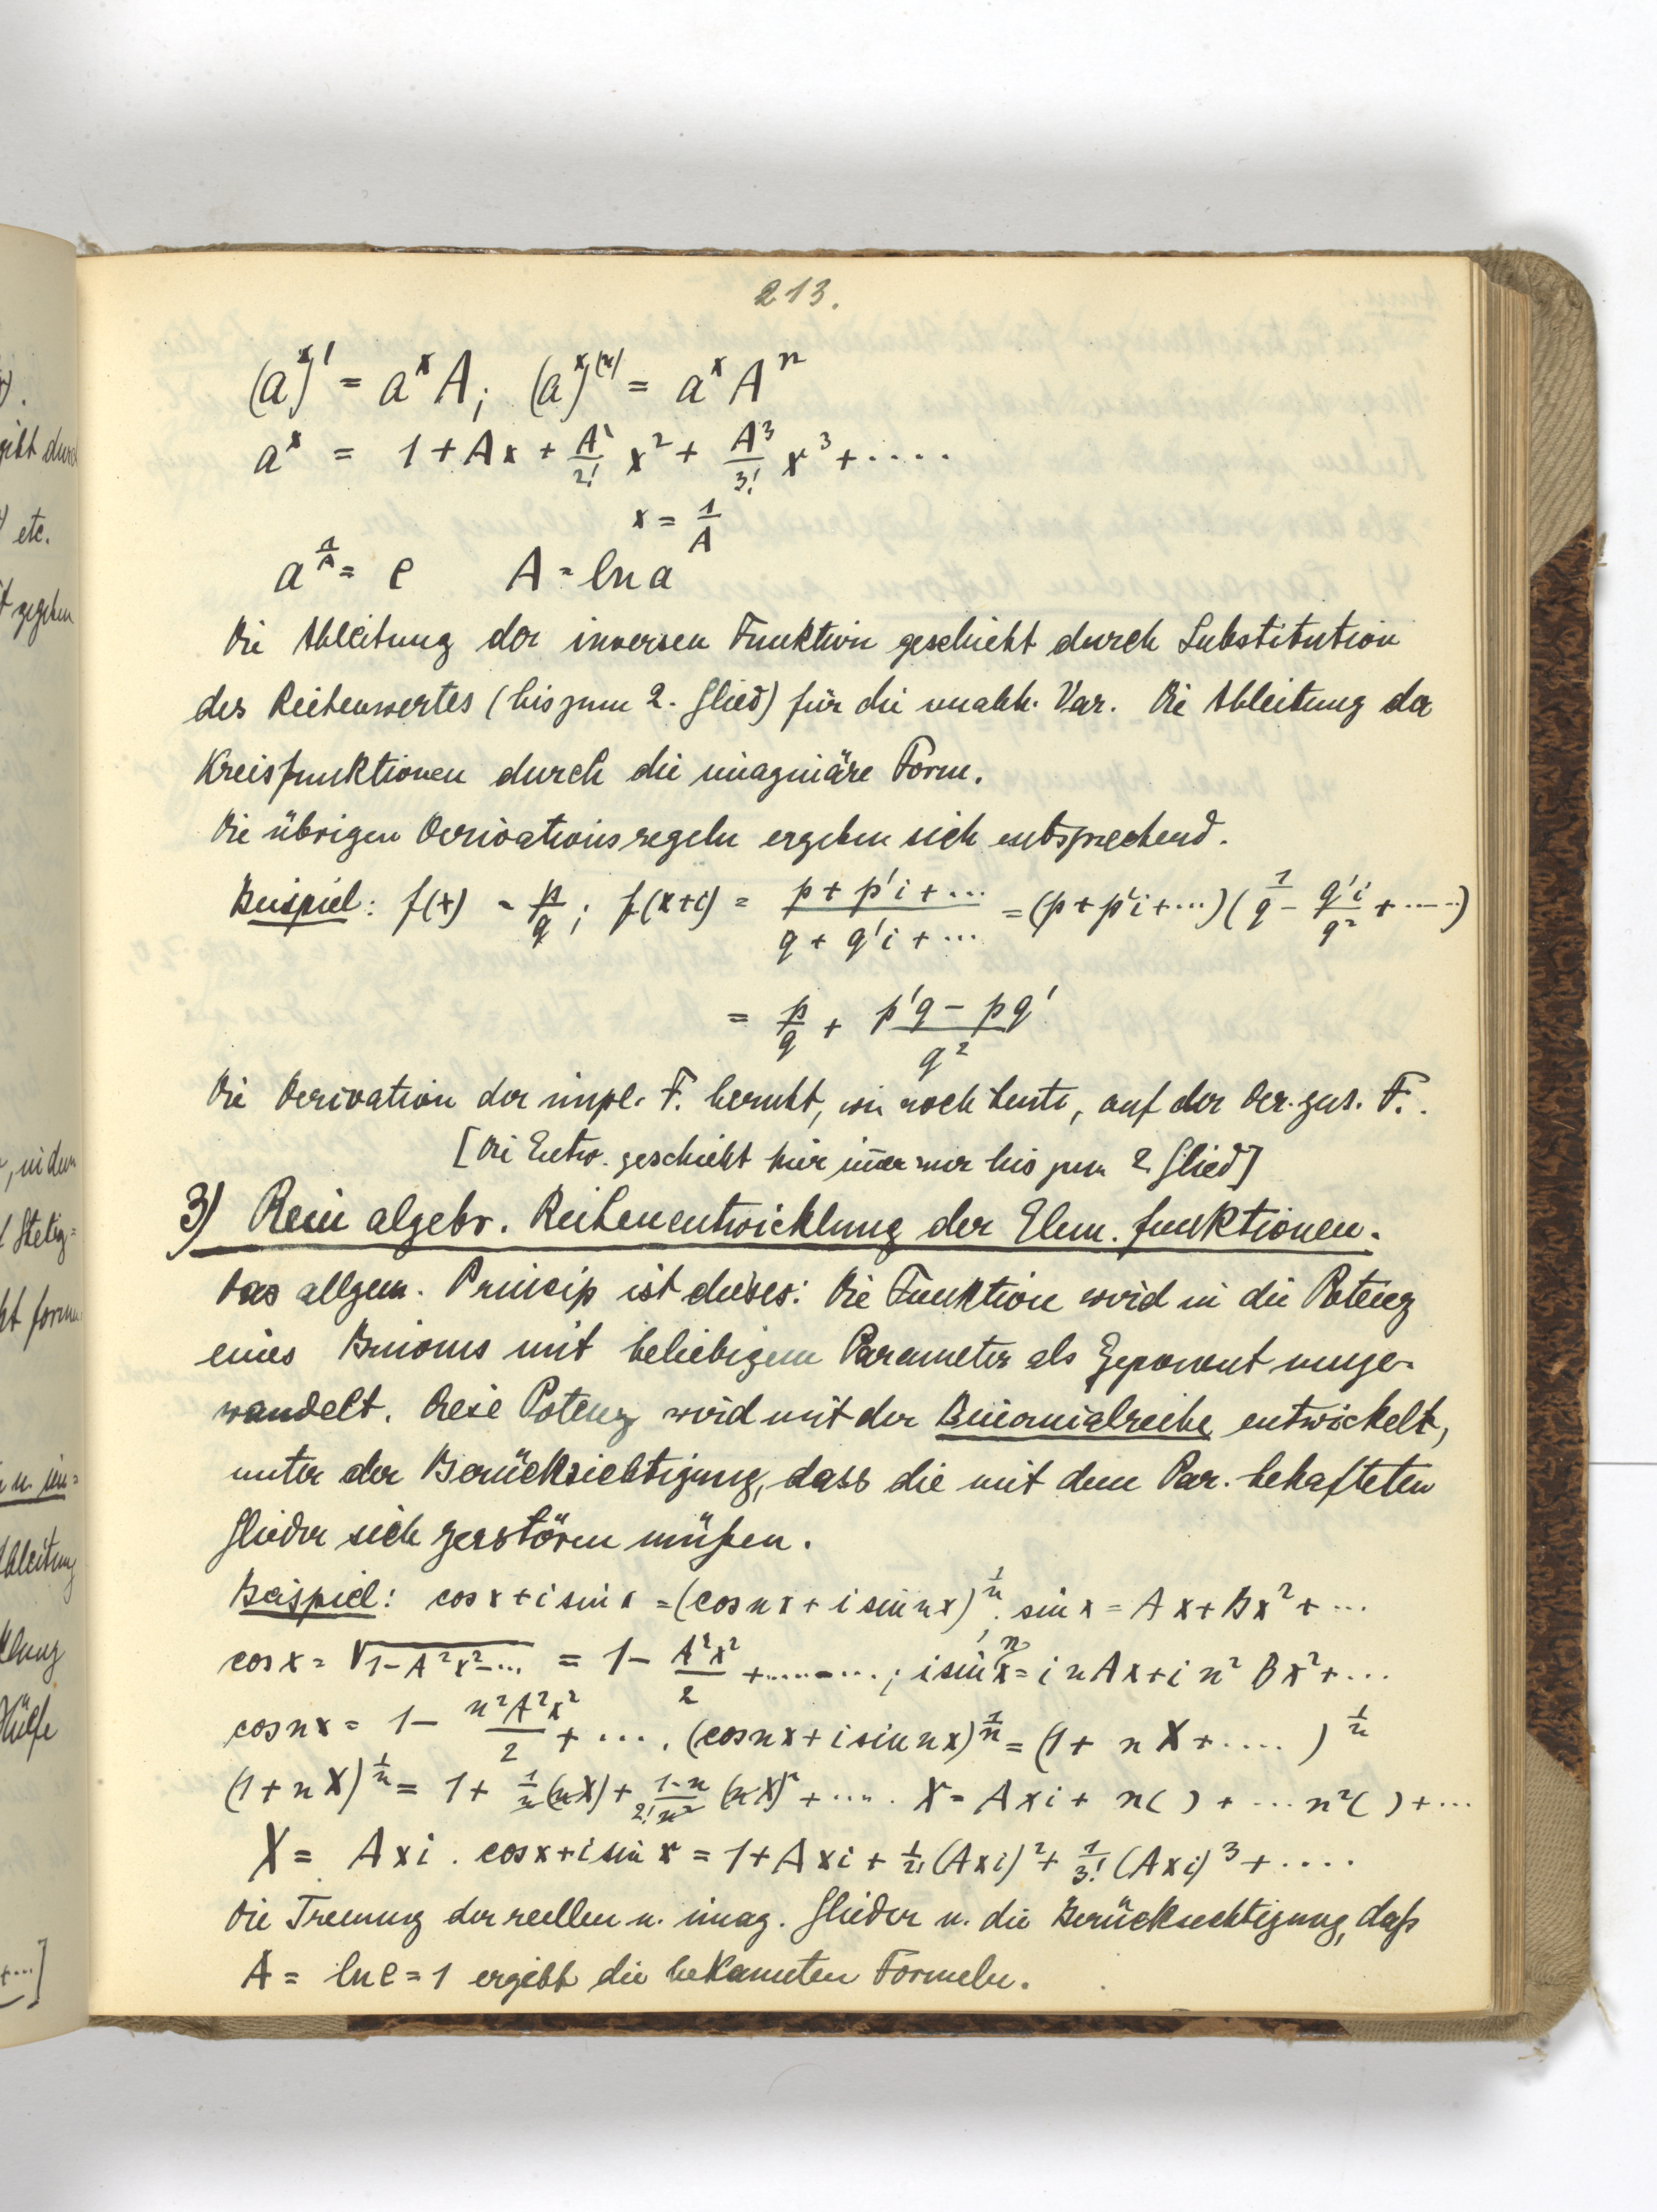 213.
(a^x)' = a^x A; (a^x)^(n) = a^x A^n
a^x = 1 + Ax + A²/2! x² + A³/3! x³ + .....
x = 1/A
a^(1/A) = e A = ln a
Die Ableitung der inversen Funktion geschieht durch Substitution
des Reihenwertes (bis zum 2. Glied) für die unabh. Var. Die Ableitung der
Kreisfunktionen durch die imaginäre Form.
Die übrigen Derivationsregeln ergeben sich entsprechend.
Beispiel: f(x) = p/q; f(x+i) = (p + p'i + ...)/(q + q'i + ...) = (p + p'i + ...)(1/q - q'i/q² + .....)
= p/q + (p'q - pq')/q²
Die Derivation der impl. F. beruht, wie noch heute, auf der Der. zus. F..
[Die Entw. geschieht hier im̄er nur bis zum 2. Glied]
3) Rein algebr. Reihenentwicklung der Elem. funktionen.
Das allgem. Princip ist dieses: Die Funktion wird in die Potenz
eines Binoms mit beliebigem Parameter als Exponent umge-
wandelt. Diese Potenz wird mit der Binomialreihe entwickelt,
unter der Berücksichtigung, dass die mit dem Par. behafteten
Glieder sich zerstören müßen.
Beispiel: cos x + i sin x = (cos nx + i sin nx)^(1/n); sin x = Ax + Bx² + ...
cos x = √(1 - A²x² - ...) = 1 - A²x²/2 + ........; i sin nx = i n Ax + i n² Bx² + ...
cos nx = 1 - n²A²x²/2 + .... (cos nx + i sin nx)^(1/n) = (1 + n X + ....)^(1/n)
(1 + n X)^(1/n) = 1 + 1/n (nX) + (1-n)/(2! n²) (nX)² + ..... X = Axi + n( ) + ... n²( ) + ...
X = Axi. cos x + i sin x = 1 + Axi + 1/2! (Axi)² + 1/3! (Axi)³ + ....
Die Trennung der reellen u. imag. Glieder u. die Berücksichtigung, daß
A = ln e = 1 ergibt die bekannten Formeln.